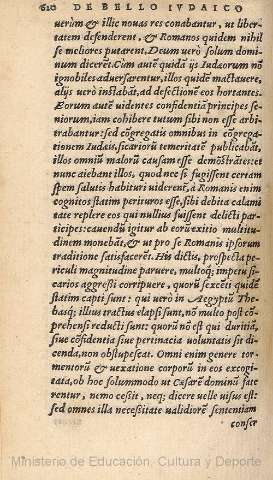 610 DE BELLO IVDAICO
uerùm & illic nouas res conabantur, ut liber-
tatem defenderent, & Romanos quidem nihil
se meliores putarent, Deum uerò solum domi-
num dicerēt. Cùm autē quidā ijs Iudæorum nō
ignobiles aduersarentur, illos quidē mactauere,
alijs uerò instabāt, ad defectionē eos hortantes.
Eorum autē uidentes confidentiā principes se-
niorum, iam cohibere tutum sibi non esse arbi-
trabantur: sed cōgregatis omnibus in cōgrega-
tionem Iudæis, sicariorū temeritatē publicabāt,
illos omniū malorū causam esse demōstrātes: et
nunc aiebant illos, quod nec si fugissent certam
spem salutis habituri uiderent, à Romanis enim
cognitos statim perituros esse, sibi debita calami
tate replere eos qui nullius fuissent delicti par-
ticipes: cauendū igitur ab eorū exitio multitu-
dinem monebāt, & ut pro se Romanis ipsorum
traditione satisfacerēt. His dictis, prospecta pe-
riculi magnitudine paruere, multoq; impetu si-
carios aggressi corripuere, quorū sexcēti quidē
statim capti sunt: qui uerò in Aegyptū The-
basq; illius tractus elapsi sunt, nō multo post cō-
prehensi reducti sunt: quorū nō est qui duritiā,
siue cōfidentia siue pertinacia uoluntatis sit di-
cenda, non obstupescat. Omni enim genere tor-
mentorū & uexatione corporū in eos excogi-
tata, ob hoc solummodo ut Cæsarē dominū fate
rentur, nemo cessit, neq; dicere uelle uisus est:
sed omnes illa necessitate ualidiorē sententiam
conser
Ministerio de Educación, Cultura y Deporte